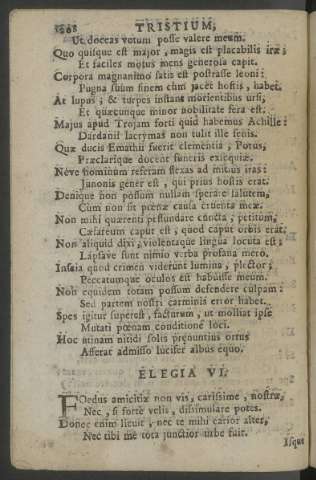 TRISTIUM,
Ut doceas votum posse valere meum.
Quo quisque est major, magis est placabilis iræ;
Et faciles motus mens generosa capit.
Corpora magnanimo satis est postrasse leoni:
Pugna suum finem cum jacet hostis, habet.
At lupus; & turpes instant morientibus ursi;
Et quæcunque minor nobilitate fera est.
Majus apud Trojam forti quid habemus Achille:
Dardanii lacrymas non tulit ille senis.
Quæ ducis Emathii fuerit clementia; Porus,
Præclarique docent funeris exequiæ.
Neve hominum referam flexas ad mitius iras:
Junonis gener est, qui prius hostis erat.
Denique non possum nullam sperare salutem,
Cum non sit pœnæ causa cruenta meæ.
Non mihi quærenti pessundare cuncta; petitum,
Cæsareum caput est, quod caput orbis erat.
Non aliquid dixi, violentaque lingua locuta est;
Lapsave sunt nimio verba profana mero.
Inscia quod crimen viderunt lumina, plector;
Peccatumque oculos est habuisse meum.
Non equidem totam possum defendere culpam:
Sed partem nostri carminis error habet.
Spes igitur superest, facturum, ut molliat ipse
Mutati pœnam conditione loci.
Hoc utinam nitidi solis prænuntius ortus
Afferat admisso lucifer albus equo.
ELEGIA VI.
FOedus amicitiæ non vis, carissime, nostræ,
Nec, si forte velis, dissimulare potes.
Donec enim licuit, nec te mihi carior alter,
Nec tibi me tota junctior urbe fuit.
Isque